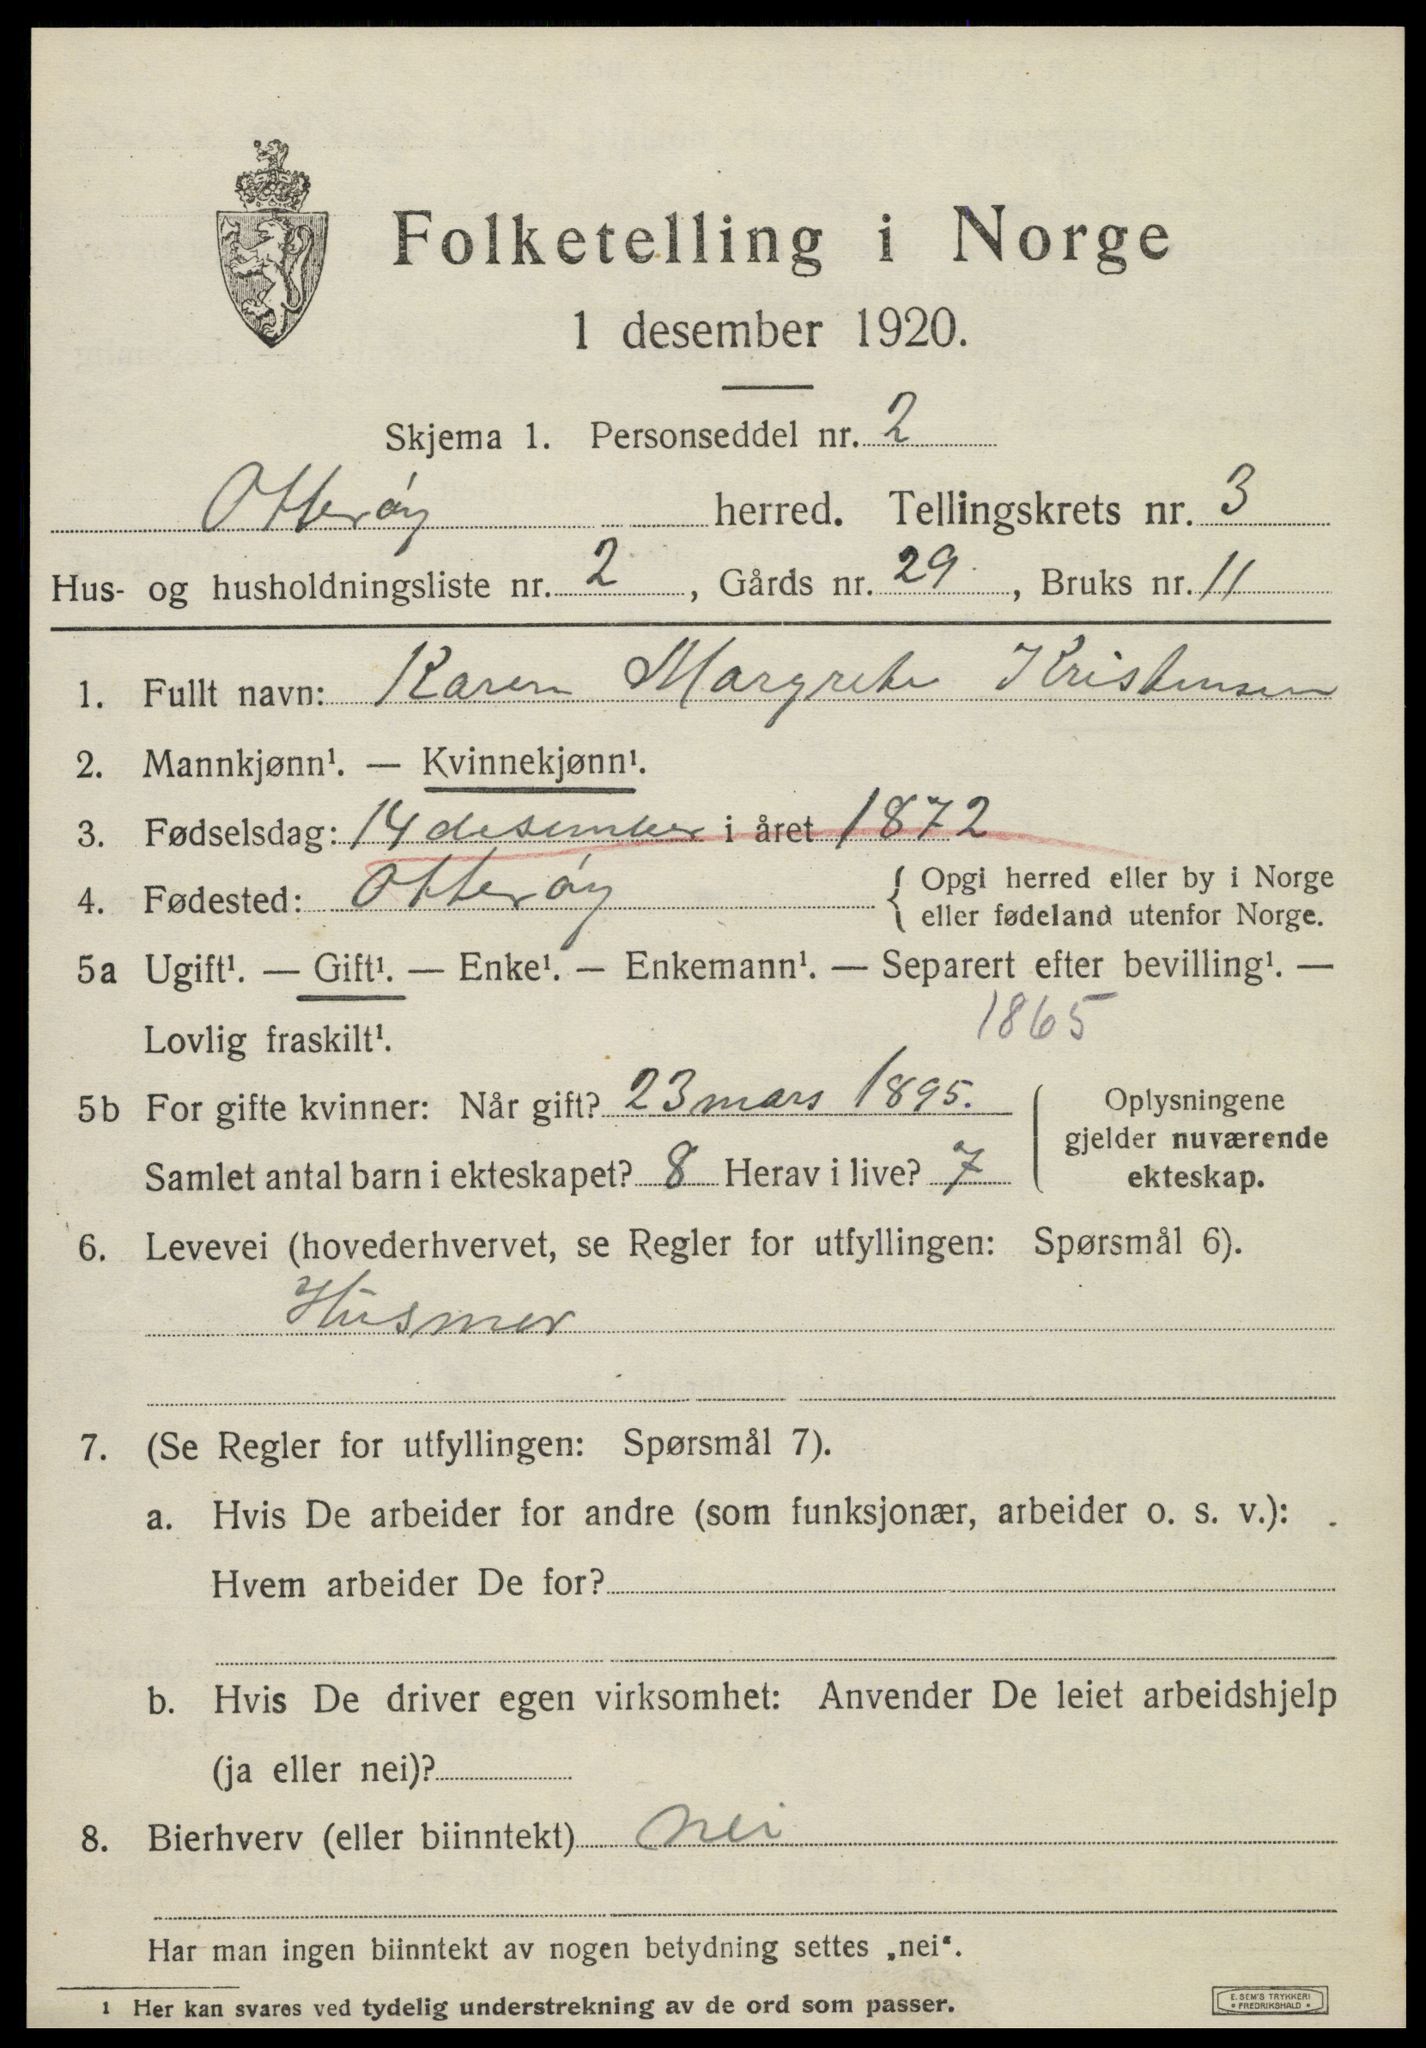 Folketelling i Norge
1 desember 1920.
Skjema 1. Personseddel nr. 2
Otterøy herred. Tellingskrets nr. 3
Hus- og husholdningsliste nr. 2, Gårds nr. 29, Bruks nr. 11
1. Fullt navn: Karen Margrete Kristensen
2. Mannkjønn¹. — Kvinnekjønn¹.
3. Fødselsdag: 14 desember i året 1872
4. Fødested: Otterøy { Opgi herred eller by i Norge
eller fødeland utenfor Norge.
5a Ugift¹. — Gift¹. — Enke¹. — Enkemann¹. — Separert efter bevilling¹. —
Lovlig fraskilt¹. 1865
5b For gifte kvinner: Når gift? 23 mars 1895. Oplysningene
gjelder nuværende
Samlet antal barn i ekteskapet? 8 Herav i live? 7 ekteskap.
6. Levevei (hovederhvervet, se Regler for utfyllingen: Spørsmål 6).
Husmor
7. (Se Regler for utfyllingen: Spørsmål 7).
a. Hvis De arbeider for andre (som funksjonær, arbeider o. s. v.):
Hvem arbeider De for?
b. Hvis De driver egen virksomhet: Anvender De leiet arbeidshjelp
(ja eller nei)?
8. Bierhverv (eller biinntekt) nei
Har man ingen biinntekt av nogen betydning settes „nei“.
1 Her kan svares ved tydelig understrekning av de ord som passer.
E. SEM'S TRYKKERI
• FREDRIKSHALD •